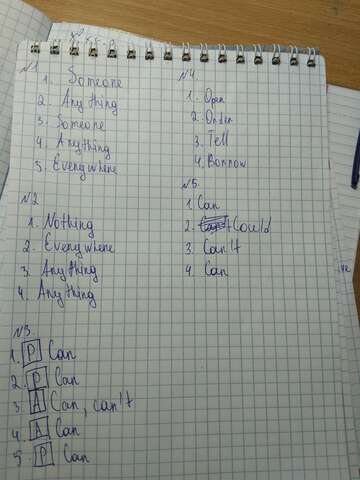 №1
1. Someone
2. Anything
3. Someone
4. Anything
5. Everywhere
№2
1. Nothing
2. Everywhere
3. Anything
4. Anything
№3
1. P Can
2. P Can
3. A Can, can't
4. A Can
5. P Can
№4.
1. Open
2. Order
3. Tell
4. Borrow
№5.
1. Can
2. Could
3. Can't
4. Can